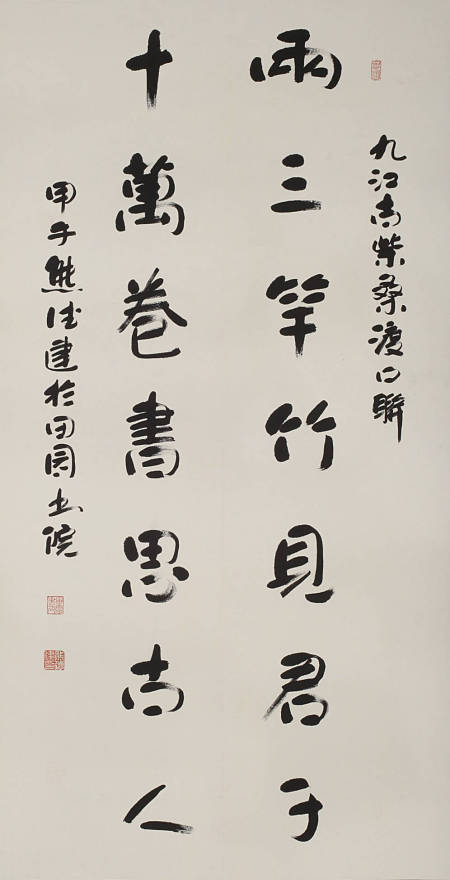 九江古柴桑渡口聯
兩三竿竹見君子
十萬卷書思古人
甲子熊德建於田園書院